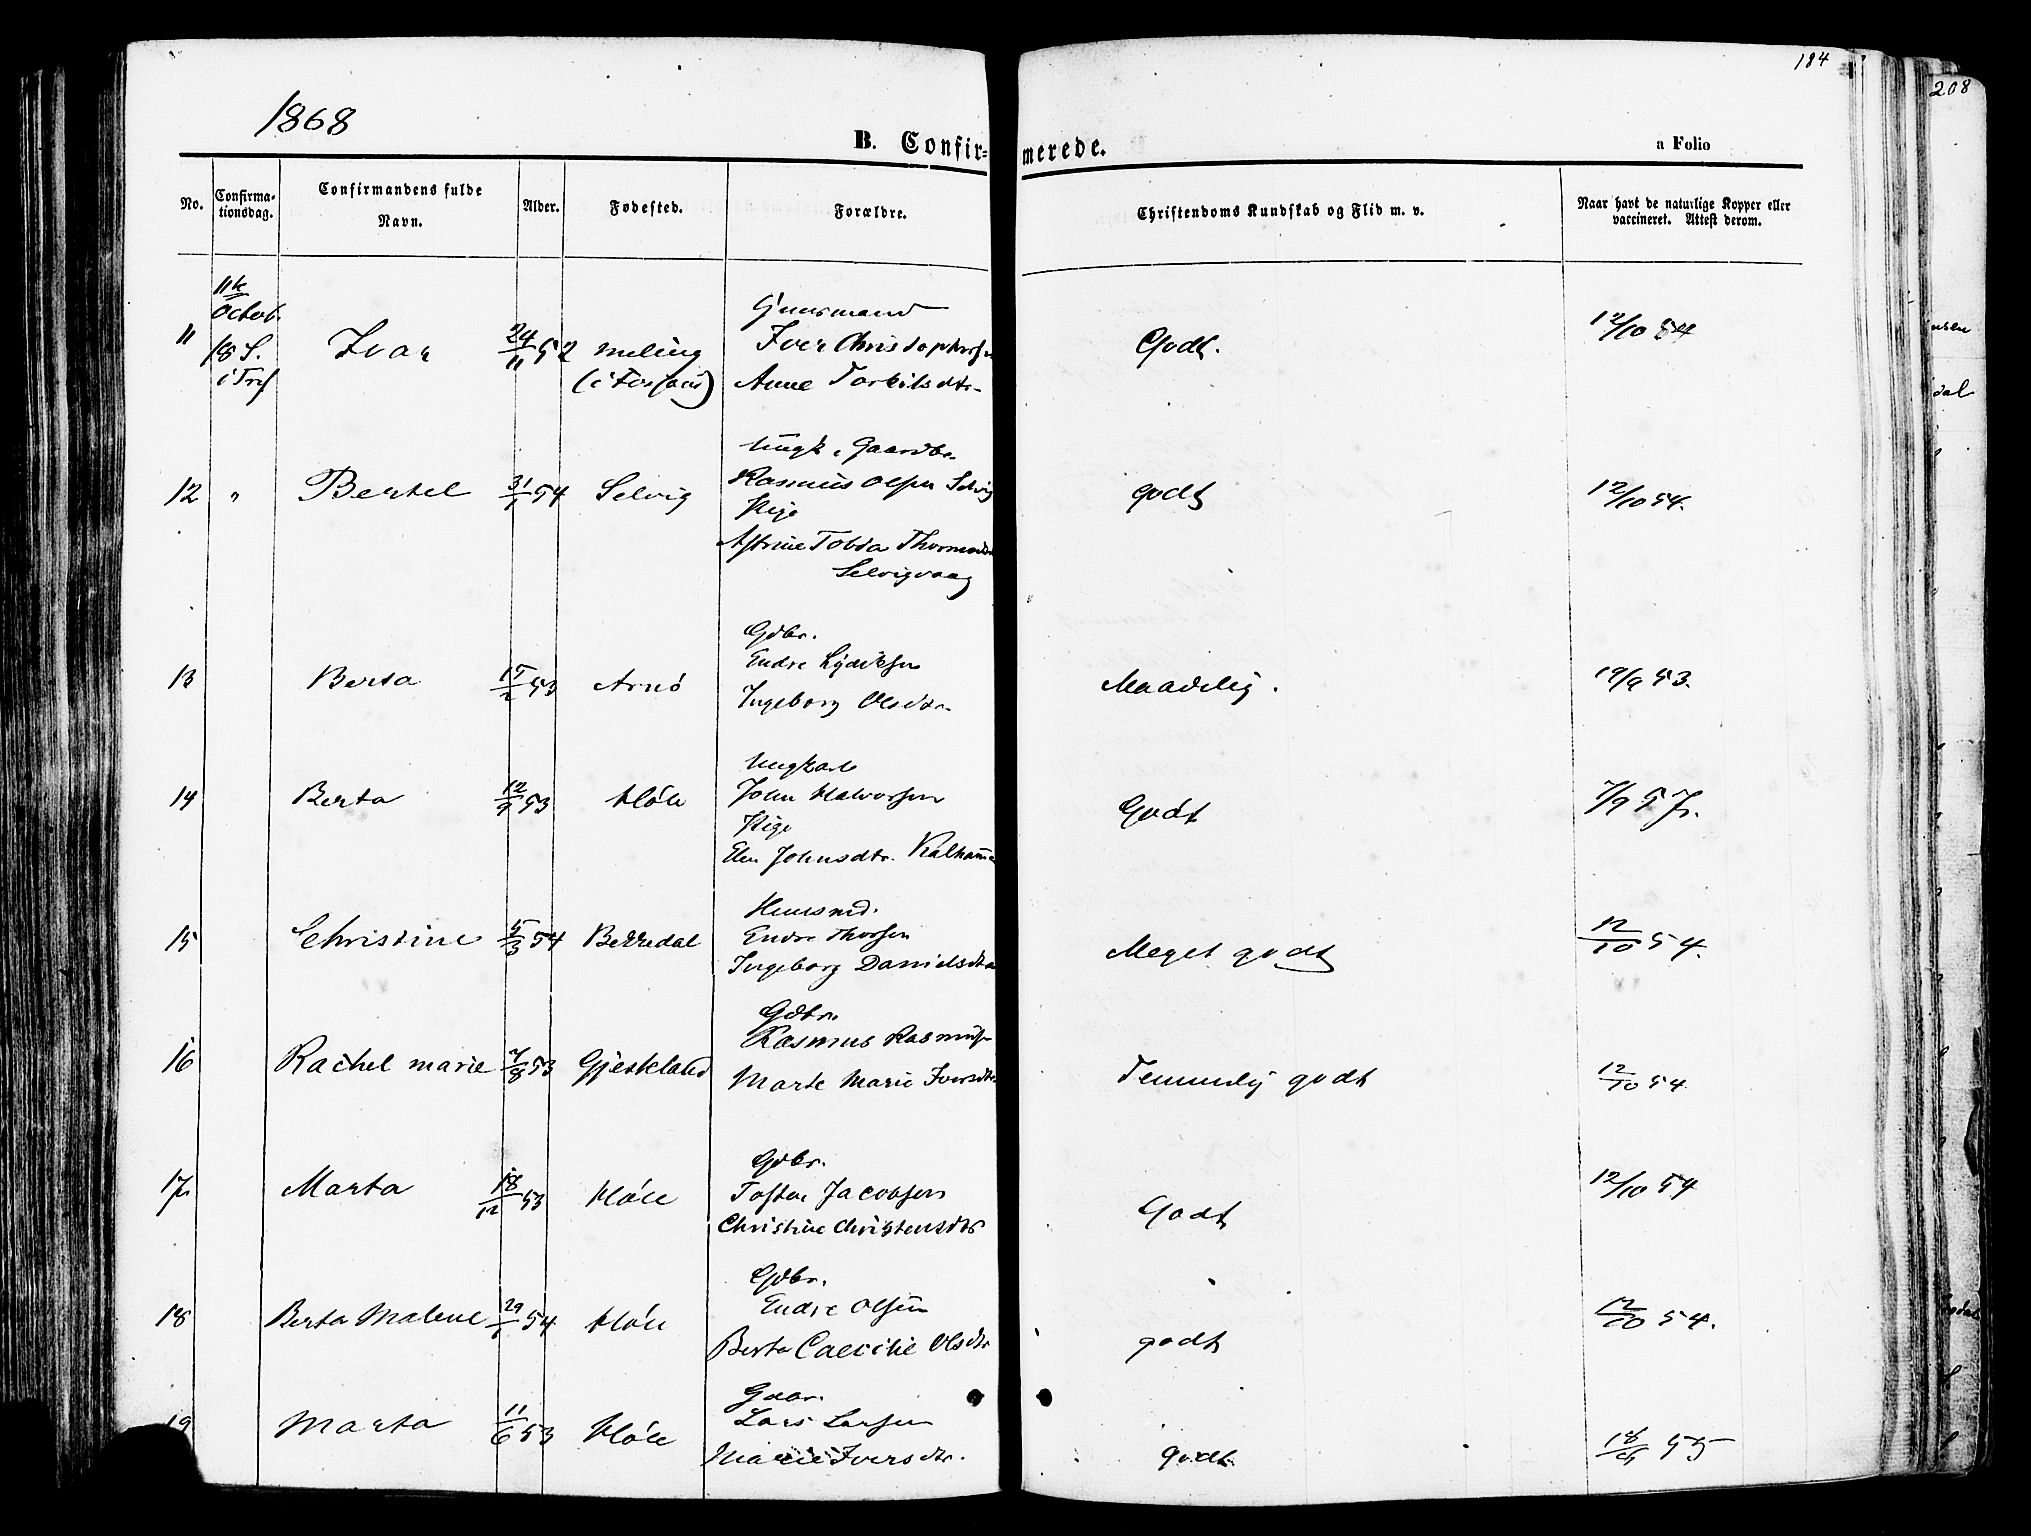 184
208
1868
B. Confir=
merede.
a Folio
No.
Confirma-
tionsdag.
Confirmandens fulde
Navn.
Alder.
Fødested.
Forældre.
Christendoms Kundskab og Flid m. v.
Naar havt de naturlige Kopper eller
vaccineret. Attest derom.
11te
Octob.
18 S.
i Tref
11 Ivar 24/11 52 Meling
Iver Christophers
Anne Torkilsdtr
Godt.
12/10 54
12 " Bertel 31/1 54 Selvig
Ungk. Gaardbr.
Rasmus Olsen Selvig
Pige
Tobia
Selvigvaag
godt
12/10 54.
13 Berta 15/2 53 Arnö
Gdbr.
Endre Lydiksen
Ingeborg Olsdtr.
Maadelig.
19/9 53.
14 Berta 12/9 53 Höle
Ungkarl
John Halvorsen
Pige
Elen Johnsdtr. Kalhamm
Godt
7/9 57.
15 Christine 15/3 54 Bekkedal
Huusmd.
Endre Thorsen
Ingeborg Danielsdtr
Meget godt
12/10 54.
16 Rachel Marie 7/8 53 Gjesteland
Gdbr.
Rasmus Rasmus
Marte Marie Iversdtr
Temmelig godt
12/10 54.
17 Marta 18/12 53 Höle
Gdbr.
Tosten Jacobsen
Christine Christensdtr
Godt
12/10 54
18 Berta Malene 29/1 54 Höle
Gdbr.
Endre Olsen
Berta Caecilie Olsdtr
godt
12/10 54.
19 Marta 11/6 53 Höle
Gdbr.
Lars Larsen
Marie Iversdtr.
godt.
55